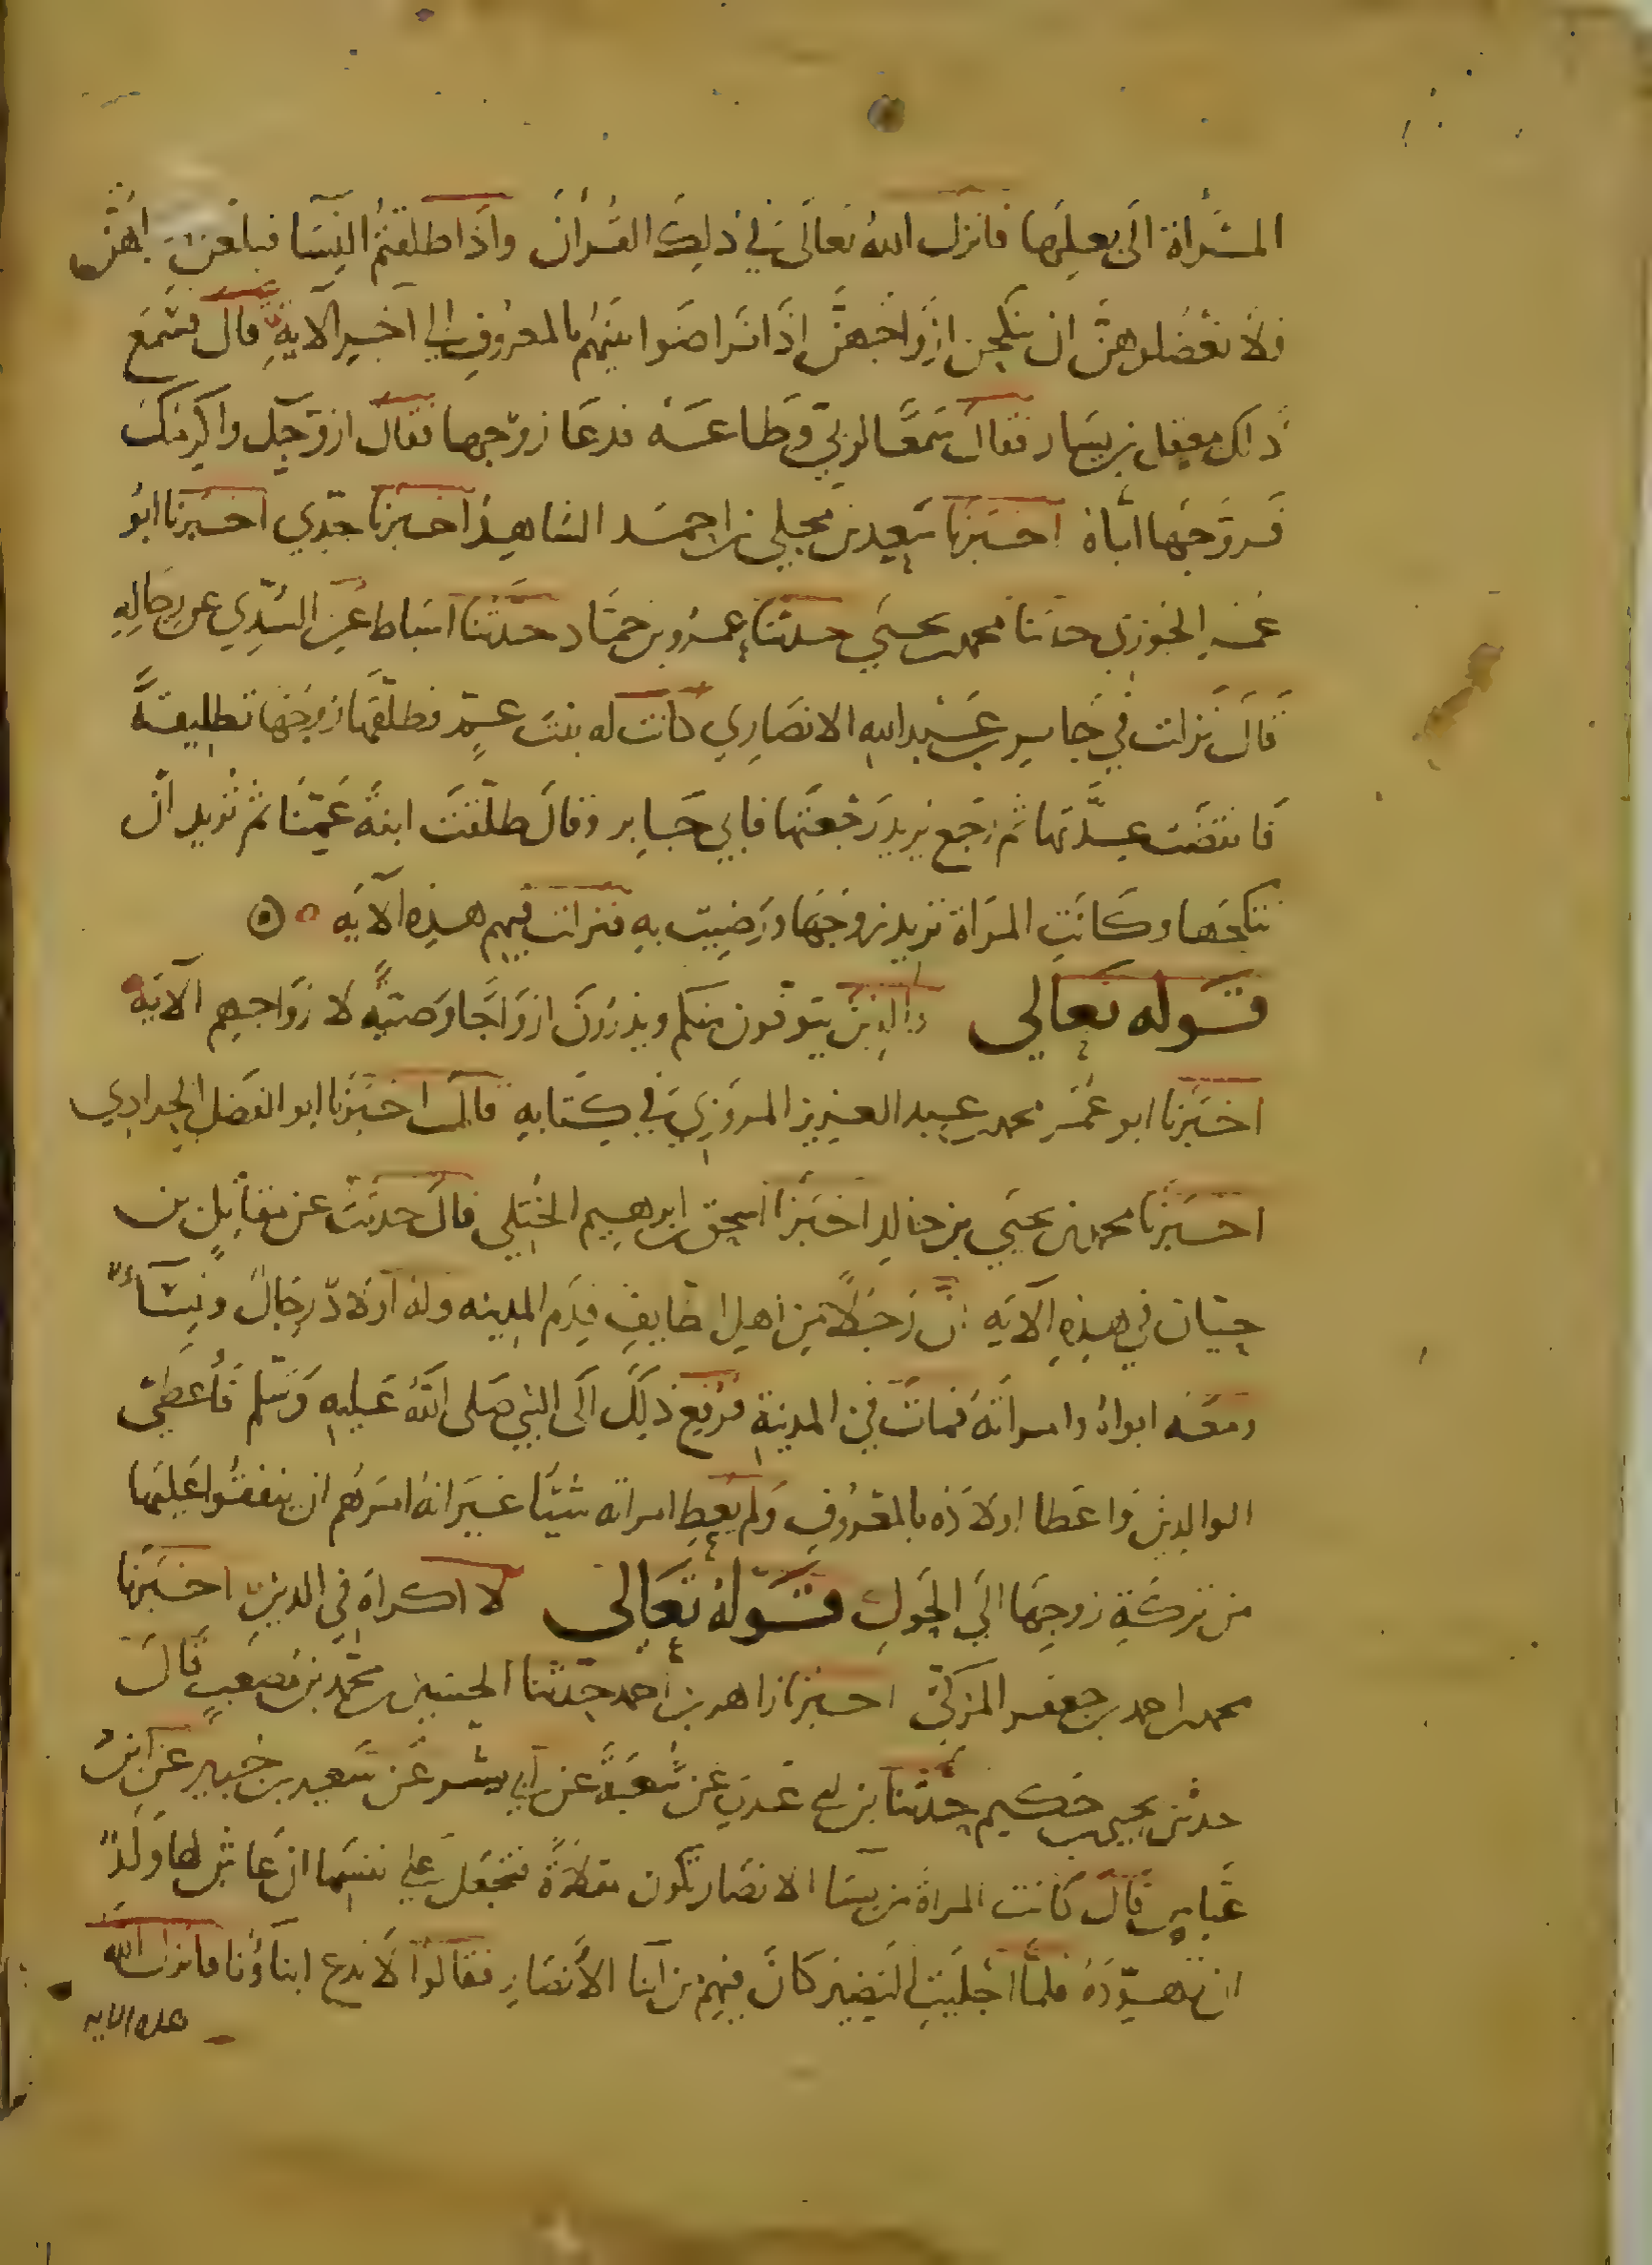 المرأة الى بعلها فانزل الله تعالى في ذلك القرآن واذا طلقتم النسا فبلغن اجلهن
فلا تعضلوهن ان ينكحن ازواجهن اذا تراضوا بينهم بالمعروف الى آخر الآية قال فسمع
ذلك معقل بن يسار فقال سمعا لربي وطاعة فدعا زوجها فقال ازوجك واكرمك
فزوجها اياه اخبرنا سعيد بن محمد بن احمد الشاهد اخبرنا جدي اخبرنا ابو
عمر الجوزي حدثنا محمد بن يحيى حدثنا عمرو بن حماد حدثنا اسباط عن السدي عن رجاله
قال نزلت في جابر بن عبد الله الانصاري كانت له بنت عم فطلقها زوجها تطليقة
فانقضت عدتها ثم رجع يريد رجعتها فابى جابر وقال طلقت ابنة عمنا ثم تريد ان
تنكحها وكانت المراة تريد زوجها ورضيت به فنزلت فيهم هذه الآية
قوله تعالى والذين يتوفون منكم ويذرون ازواجا وصية لازواجهم الآية
اخبرنا ابو عمر محمد بن عبد العزيز المروزي في كتابه قال اخبرنا ابو الفضل الحدادي
اخبرنا محمد بن يحيى بن خالد اخبرنا اسحق بن ابرهيم الحنظلي قال حدثت عن مقاتل بن
حيان في هذه الآية ان رجلا من اهل الطايف قدم المدينه وله اولاد رجال ونسآء
ومعه ابواه وامراته فمات في المدينة فرفع ذلك الى النبي صلى الله عليه وسلم فأعطى
الوالدين واعطا اولاده بالمعروف ولم يعط امراته شيئا غير انه امرهم ان ينفقوا عليها
من تركة زوجها الى الحول قوله تعالى لا اكراه في الدين اخبرنا
محمد بن احمد بن جعفر المزكي اخبرنا زاهر بن احمد حدثنا الحسين بن محمد بن مصعب قال
حدثني يحيى بن حكيم حدثنا بن ابي عدي عن شعبة عن ابي بشر عن سعيد بن جبير عن ابن
عباس قال كانت المراة من نسا الانصار تكون مقلاة فتجعل على نفسها ان عاش لها ولد
ان تهوده فلما اجليت النضير كان فيهم من ابنا الأنصار فقالوا لا ندع ابناؤنا فانزل الله
هذه الايه